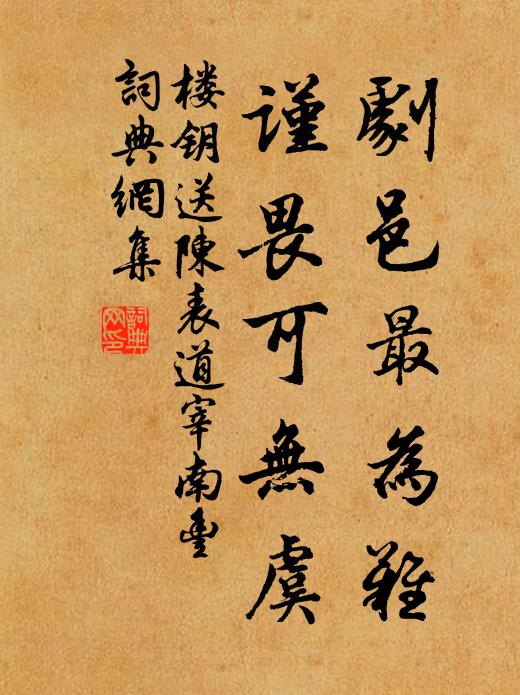 劇邑最為難
謹畏可無虞
楼钥送陳表道宰南豐
詞典網集
詞典網印